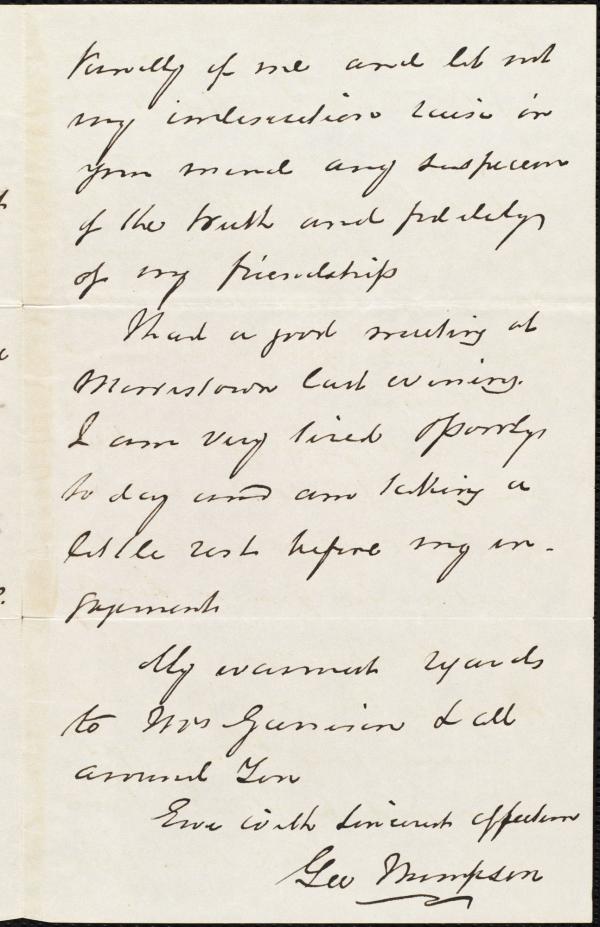 kindly of me and let not
my indiscretion raise in
your mind any suspicion
of the truth and fidelity
of my friendship
I had a good meeting at
Morristown last evening.
I am very tired
to day and am taking a
little rest before my en-
gagement
My warmest regards
to Mrs Garrison & all
around you
Ever with sincerest affection
Geo Thompson